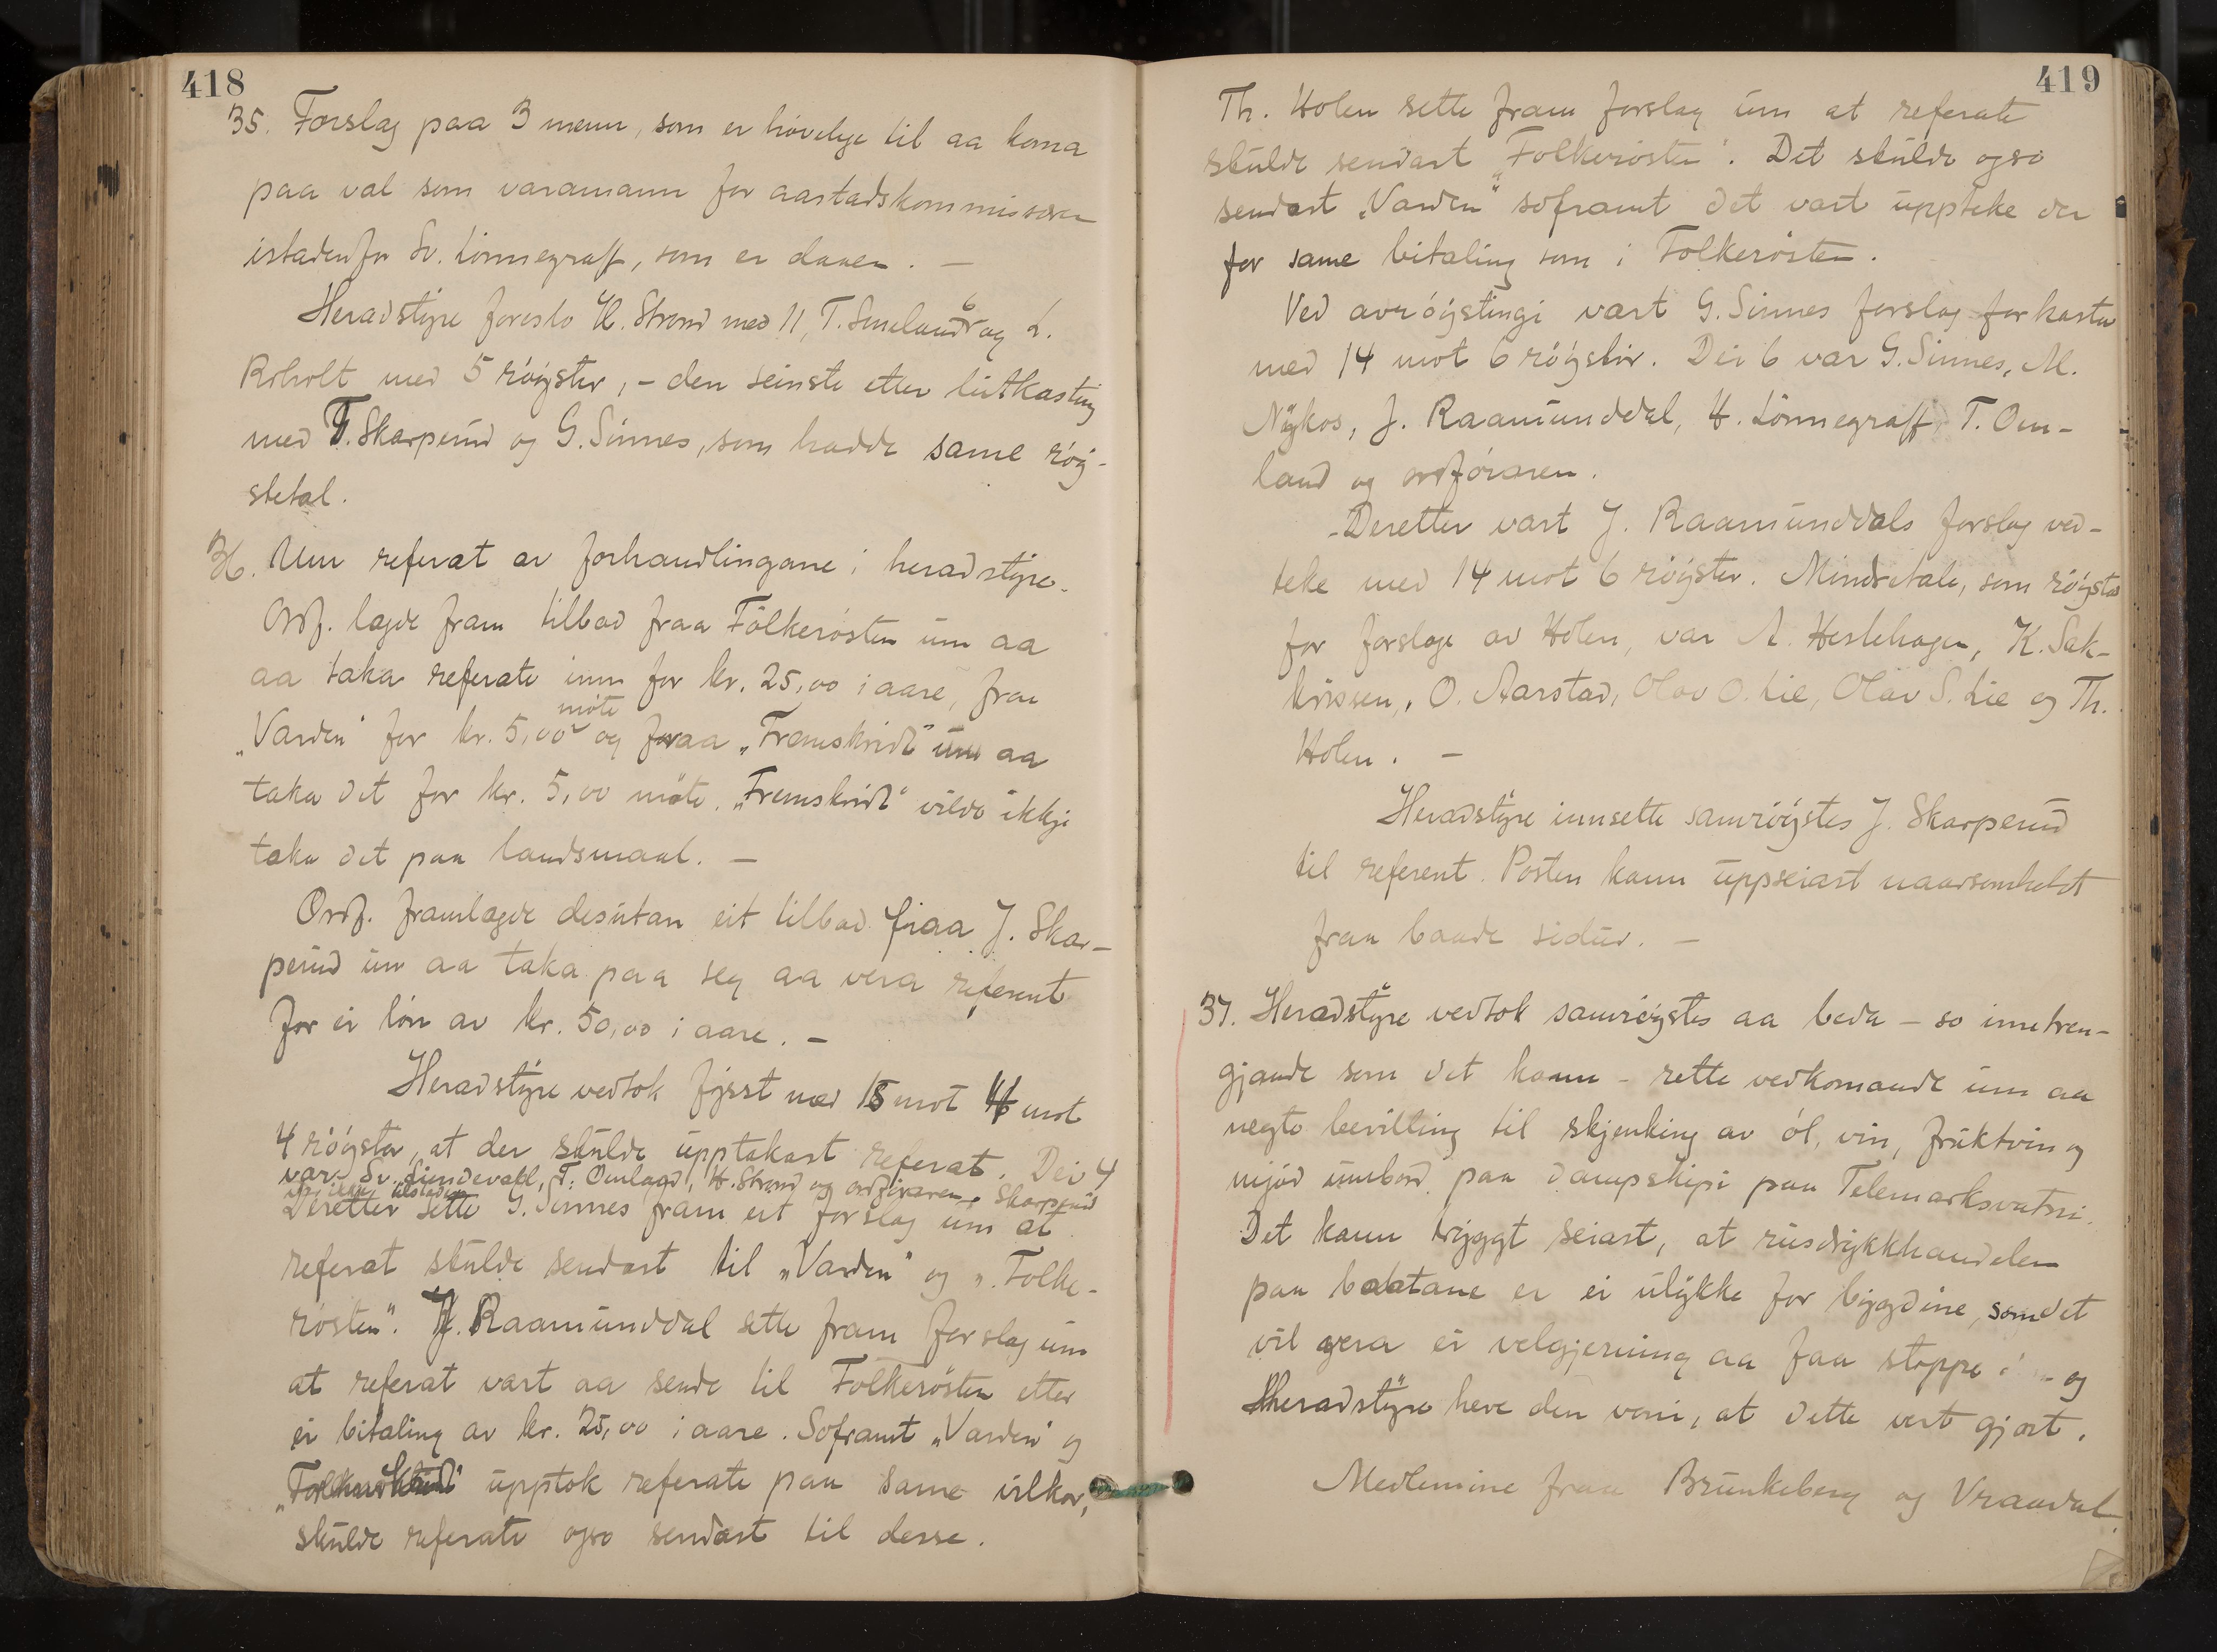 418
35. Forslag paa 3 menn, som er høvelege til aa koma
paa val som varamann for aastadskommissæren
istadenfor Sv. Lønnegraff, som er daaen. —
Heradstyre foreslo H. Strand med 11, T. Smeland 6 og L.
Roholt med 5 røyster, – den seinste etter lutkasting
med T. Skarperud og G. Sinnes, som hadde same røy-
stetal.
36. Um referat av forhandlingane i heradstyre.
Ordf. lagde fram tilbod fraa Folkerøsten um aa
aa taka referate inn for kr. 25,00 i aare, fraa
„Varden" for kr. 5,00 møte og fraa „Fremskridt" um aa
taka det for kr. 5,00 møte. „Fremskridt" vilde ikkje
taka det paa landsmaal. —
Ordf. framlagde desutan eit tilbod fraa J. Skar-
perud um aa taka paa seg aa vera referent
for ei løn av kr. 50,00 i aare. –
Heradstyre vedtok fysst med 15 mot 4 mot
4 røyster, at der skulde upptakast referat. Dei 4
var Sv. Lundevall, T. Omland, H. Strand og ordføraren. Skarperud
var ikkje tilstades
Deretter sette G. Sinnes fram eit forslag um at
referat skulde sendast til „Varden" og „Folke-
røsten". J. Raamunddal sette fram forslag um
at referat vart aa sende til Folkerøsten etter
ei bitaling av kr. 25,00 i aare. Soframt „Varden" og
upptok referate paa same vilkor,
skulde referate ogso sendast til desse.
419
Th. Holen sette fram forslag um at referate
skulde sendast „Folkerøsten". Det skulde ogso
sendast „Varden" soframt det vart uppteke der
for same bitaling som i Folkerøsten.
Ved avrøystingi vart G. Sinnes forslag forkasta
med 14 mot 6 røyster. Dei 6 var G. Sinnes, M.
Nykos, J. Raamunddal, H. Lønnegraff, T. Om-
land og ordføraren.
Deretter vart J. Raamunddals forslag ved-
teke med 14 mot 6 røyster. Mindretale, som røysta
for forslage av Holen, var A. Heslehagen, K. Sak-
krissen, O. Aarstad, Olav O. Lie, Olav S. Lie og Th.
Holen. –
Heradstyre innsette samrøystes J. Skarperud
til referent. Posten kann uppseiast naarsomhelst
fraa baade sidur. –
37. Heradstyre vedtok samrøystes aa beda – so innetren-
gjande som det kann – rette vedkomande um aa
negte bevilling til skjenking av øl, vin, fruktvin og
mjød umbord paa dampskipi paa Telemarksvatni.
Det kann trygt seiast, at rusdrykkhandelen
paa baatane er ei ulykke for bygdine, som det
vil vera ei velgjerning aa faa stoppe i – og
heradstyre heve den voni, at dette vert gjort.
Medlemine fraa Brunkeberg og Vraadal